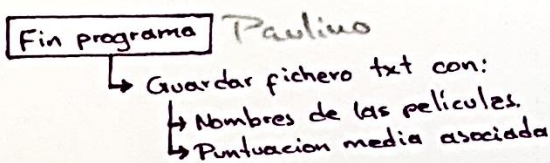 Fin programa Paulino
Guardar fichero txt con:
Nombres de las películas.
Puntuacion media asociada